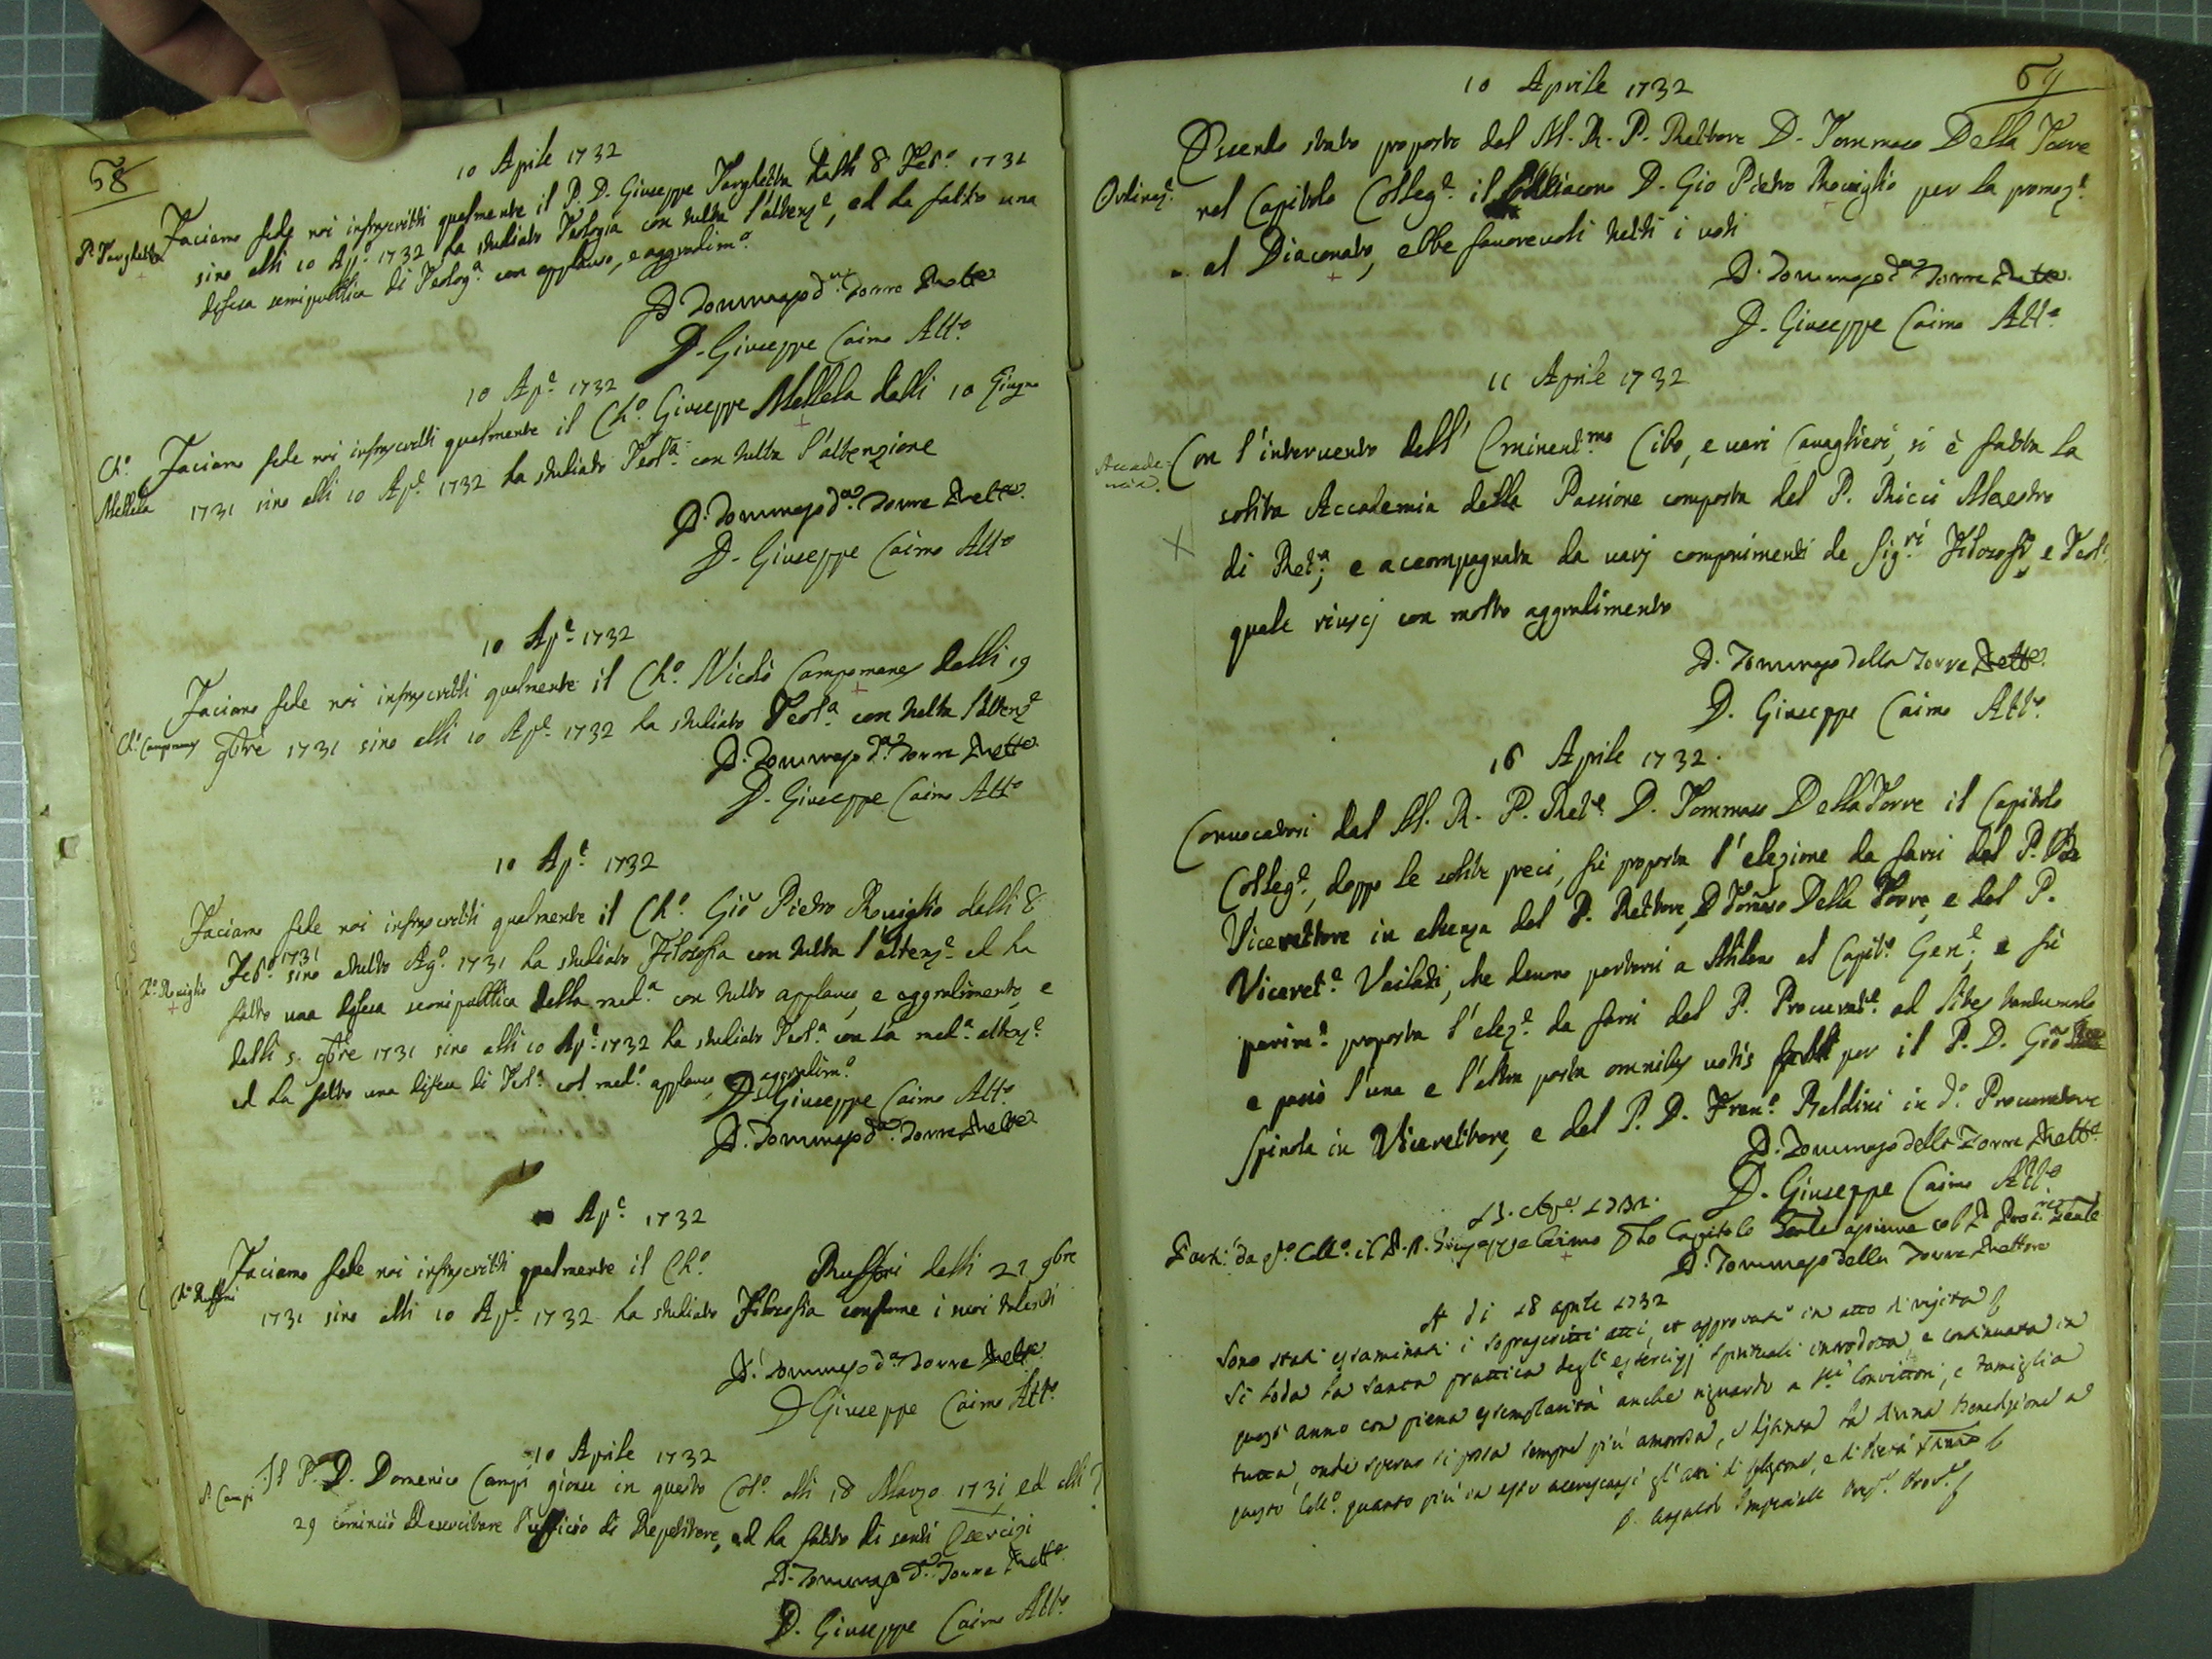 58
10 Aprile 1732
P. Targhetta
Faciamo fede noi infrascritti qualmente il P. D. Giuseppe Targhetta dalli 8 Feb.º 1731
sino alli 10 Ap.e 1732 ha studiato Teologia con tutta l'attenz.e, ed ha fatto una
difesa semipublica di Teolog.a con applauso, e aggradim.o
D. Tommaso d.a Torre Rett.e
D. Giuseppe Caimo Att.o
10 Ap.e 1732
Ch.o Mellela
Faciamo fede noi infrascritti qualmente il Ch.o Giuseppe Mellela dalli 10 Giugno
1731 sino alli 10 Ap.e 1732 ha studiato Teol.a con tutta l'attenzione
D. Tommaso d.a Torre Rett.e
D. Giuseppe Caimo Att.o
10 Ap.e 1732
Ch.o Campomanes
Faciamo fede noi infrascritti qualmente il Ch.o Nicolò Campomanes dalli 19
9bre 1731 sino alli 10 Ap.e 1732 ha studiato Teol.a con tutta l'attenz.e
D. Tommaso d.a Torre Rett.e
D. Giuseppe Caimo Att.o
10 Ap.e 1732
Ch.o Roviglio
Faciamo fede noi infrascritti qualmente il Ch.o Gio Pietro Roviglio dalli 8
Feb.o 1731 sino a tutto Ag.o 1731 ha studiato Filosofia con tutta l'attenz.e ed ha
fatto una difesa semipublica della med.a con tutto applauso, e aggradimento, e
dalli 5. 9bre 1731 sino alli 10 Ap.e 1732 ha studiato Teol.a con la med.a attenz.e
ed ha fatto una difesa di Teol.a col med.o applauso, e aggradim.o
D. Giuseppe Caimo Att.o
D. Tommaso d.a Torre Rett.e
Ap.e 1732
Ch.o Ruffini
Faciamo fede noi infrascritti qualmente il Ch.o Ruffini dalli 22 9bre
1731 sino alli 10 Ap.e 1732 ha studiato Filosofia conforme i suoi talenti
D. Tommaso d.a Torre Rett.e
D Giuseppe Caimo Att.o
10 Aprile 1732
P. Campi
Il P. D. Domenico Campi gionse in questo Col.o alli 18 Marzo 1731, ed alli
29 cominciò ad esercitare l'ufficio di Repetitore, ed ha fatto di santi Esercizi
D. Tommaso d.a Torre Rett.e
D. Giuseppe Caimo Att.o
59
10 Aprile 1732
Ordinaz.e
Essendo stato proposto dal M. R. P. Rettore D. Tommaso Della Torre
nel Capitolo Colleg.e il D. Gio Pietro Roviglio per la promoz.e
al Diaconato, ebbe favorevoli tutti i voti
D. Tommaso d.a Torre Rett.e
D. Giuseppe Caimo Att.o
11 Aprile 1732
Accademia.
Con l'intervento dell' Eminent.mo Cibo, e vari Cavaglieri, si è fatta la
solita Accademia della Passione composta dal P. Ricci Maestro
di Ret.a, e accompagnata da varj componimenti de Sig.ri Filosofi, e Teol.i
quale riuscj con molto aggradimento
D. Tommaso della Torre Rett.e
D. Giuseppe Caimo Att.o
16 Aprile 1732.
Convocatosi dal M. R. P. Ret.e D. Tommaso Della Torre il Capitolo
Colleg.e, doppo le solite preci, fù proposta l'elezione da farsi del P.
Vicerettore in absenza del P. Rettore, D Tomaso Della Torre, e del P.
Viceret.e Vailati, che devono portarsi a Milano al Capit.o Gen.e, e fù
parim.e proposta l'elez.e da farsi del P. Procurat.e ad lites
e passò l'una e l'altra posta omnibus votis per il P. D. Gio
Spinola in Vicerettore, e del P. D. Fran.o Baldini in d.o Procuratore
D. Tommaso della Torre Rett.e
D. Giuseppe Caimo Att.o
Ap.e 1732.
Partì da q.to Coll.o il P. D. Giuseppe Caimo Capitolo col P. Prov.le
D. Tommaso della Torre Rettore
A dì 18 aprile 1732
Sono stati essaminati i soprascritti atti, et approvati in atto di visita
Si loda la santa prattica degl'esercizj spirituali introdotta e continuata in
quest'anno con piena esemplarità anche riguardo a SS.ri Convittori, e famiglia
tutta, onde sperasi si possa sempre più amorosa, e la divina benedizione a
questo Coll.o quanto più in esso accrescansi gl'atti di, e di pietà
D. Imperiale Prep.o Prov.le